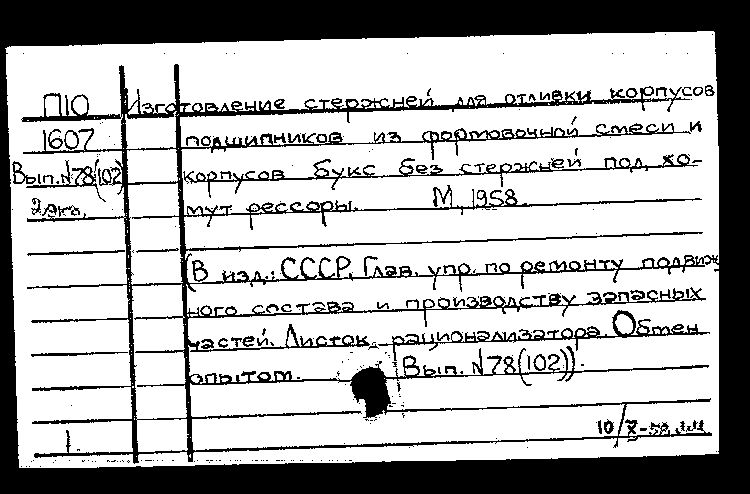 П10 Изготовление стержней для отливки корпусов
1607 подшипников из формовочной смеси и
Вып.№78(102) корпусов букс без стержней под хо-
2 экз. мут рессоры. М, 1958.
(В изд.: СССР. Глав. упр. по ремонту подвиж
ного состава и производству запасных
частей. Листок рационализатора. Обмен
опытом. Вып. №78(102)).
1.
10/X-58